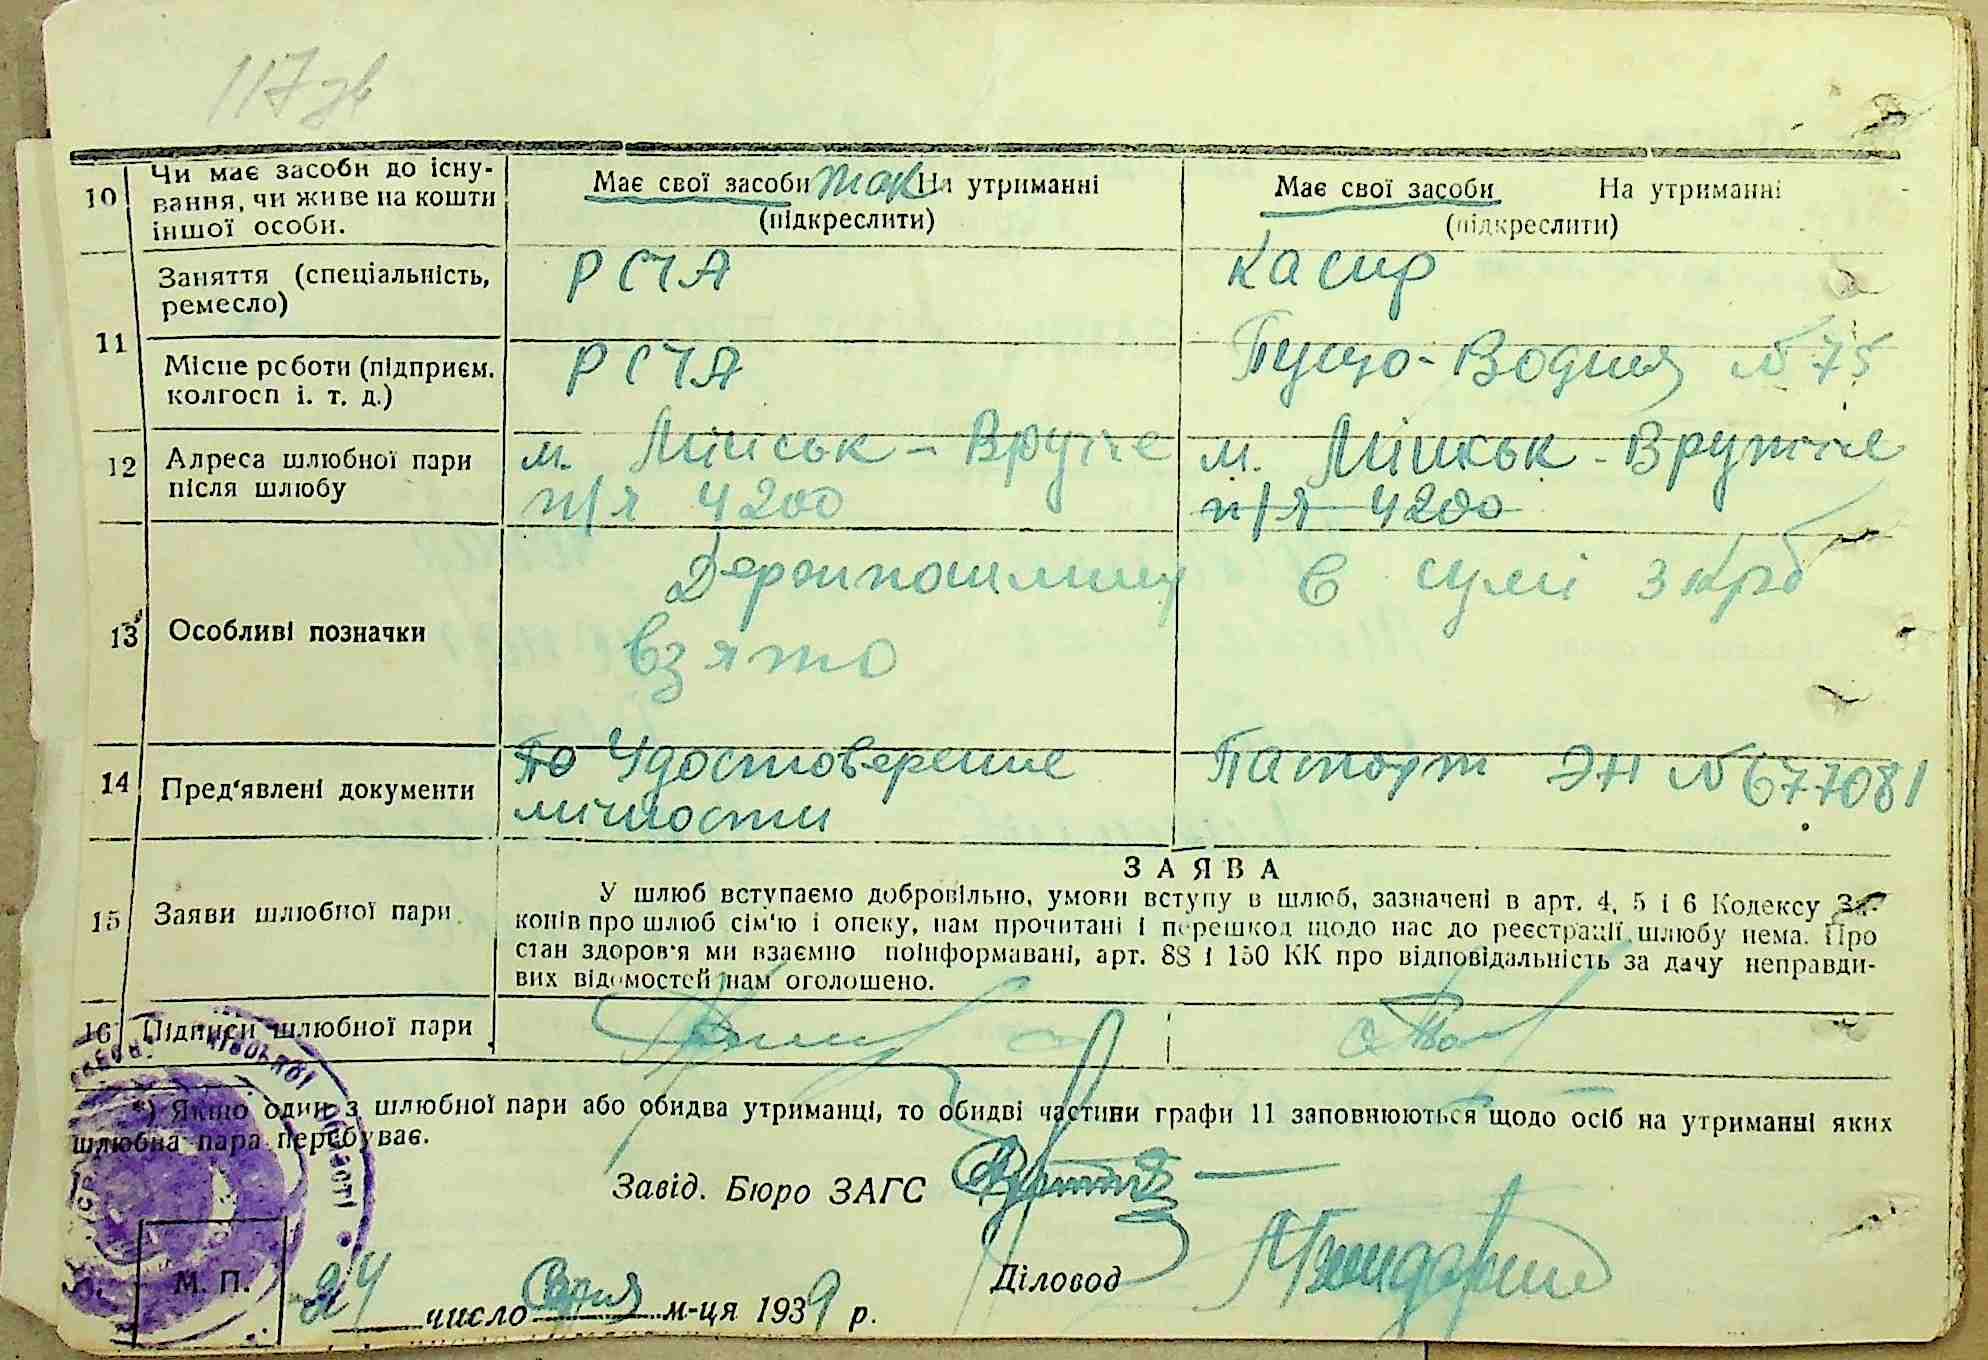 117 зв
10 Чи має засоби до існу-
вання, чи живе на кошти
іншої особи.
Має свої засоби так На утриманні
(підкреслити)
Має свої засоби На утриманні
(підкреслити)
11 Заняття (спеціальність,
ремесло)
РСЧА
Касир
Місце роботи (підприєм.
колгосп і. т. д.)
РСЧА
Пущо-Водиця №75
12 Адреса шлюбної пари
після шлюбу
м. Мінськ -
п/я 4200
м. Мінськ -
п/я 4200
13 Особливі позначки
Держпошлину в сумі 3 крб
взято
14 Пред'явлені документи
По Удостоверение
личности
Паспорт ЭН №677081
15 Заяви шлюбної пари
ЗАЯВА
У шлюб вступаємо добровільно, умови вступу в шлюб, зазначені в арт. 4, 5 і 6 Кодексу За-
конів про шлюб сім'ю і опеку, нам прочитані і перешкод щодо нас до реєстрації шлюбу нема. Про
стан здоров'я ми взаємно поінформавані, арт. 88 і 150 КК про відповідальність за дачу неправди-
вих відомостей нам оголошено.
16 Підписи шлюбної пари
*) Якщо один з шлюбної пари або обидва утриманці, то обидві частини графи 11 заповнюються щодо осіб на утриманні яких
шлюбна пара перебуває.
Завід. Бюро ЗАГС
Діловод
М. П.
24 число Серпня м-ця 1939 р.